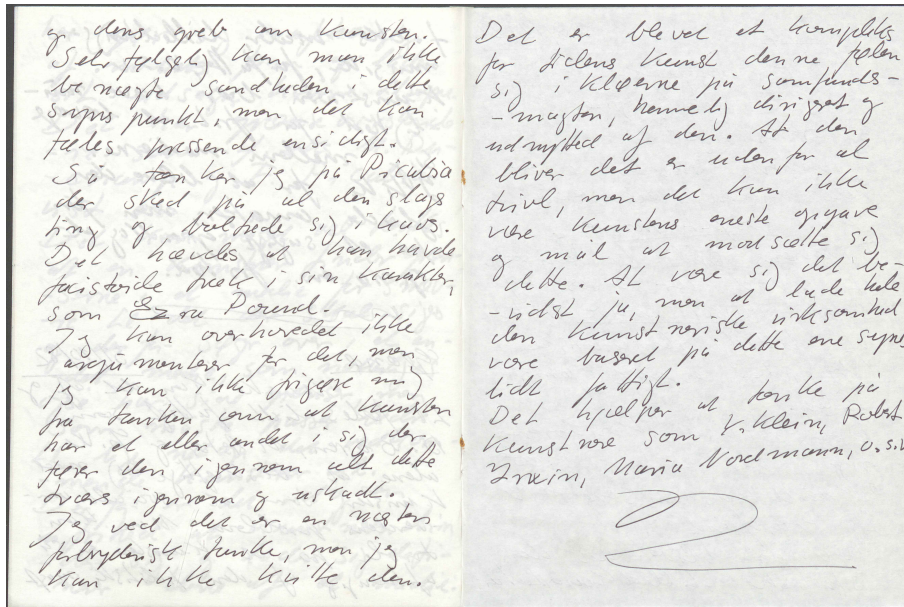 og dens greb om kunsten.
Selvfølgelig kan man ikke
benægte sandheden i dette
synspunkt, men det kan
føles pressende ensidigt.
Så tænker jeg på Picabia
der sked på al den slags
ting og boltrede sig i kaos.
Det hævdes at han havde
fascistoide træk i sin karakter,
som Ezra Pound.
Jeg kan overhovedet ikke
argumentere for det, men
jeg kan ikke frigøre mig
fra tanken om at kunsten
har et eller andet i sig der
fører den igennem alt dette
tværs igennem og uskadt.
Jeg ved det er en næsten
forbryderisk tanke, men jeg
kan ikke kvitte den.
Det er blevet et kompleks
for tidens kunst denne følen
sig i kløerne på samfunds-
-magten, hemmelig dirigeret og
udnyttet af den. At den
bliver det er udenfor al
tvivl, men det kan ikke
være kunstens eneste opgave
og mål at modsætte sig
dette. At være sig det be-
-vidst ja, men at lade hele
den kunstneriske virksomhed
være baseret på dette ene synes
lidt fattigt.
Det hjælper at tænke på
kunstnere som Y. Klein, Robert
Irwin, Maria Nordmann, o.s.v.